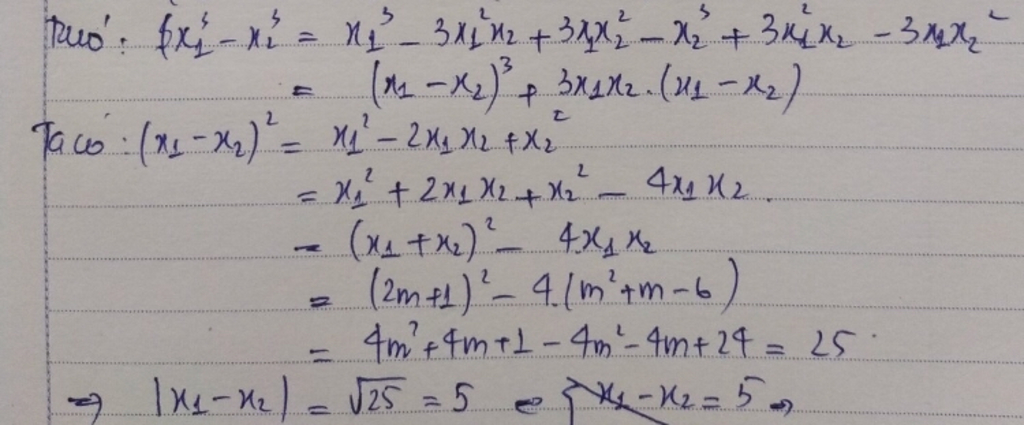 Ta có: x₁³ - x₂³ = x₁³ - 3x₁²x₂ + 3x₁x₂² - x₂³ + 3x₁²x₂ - 3x₁x₂²
= (x₁ - x₂)³ + 3x₁x₂.(x₁ - x₂)
Ta có: (x₁ - x₂)² = x₁² - 2x₁x₂ + x₂²
= x₁² + 2x₁x₂ + x₂² - 4x₁x₂.
= (x₁ + x₂)² - 4x₁x₂
= (2m+1)² - 4.(m²+m-6)
= 4m² + 4m + 1 - 4m² - 4m + 24 = 25
⇒ |x₁ - x₂| = √25 = 5 ⇔ x₁ - x₂ = 5 ⇒